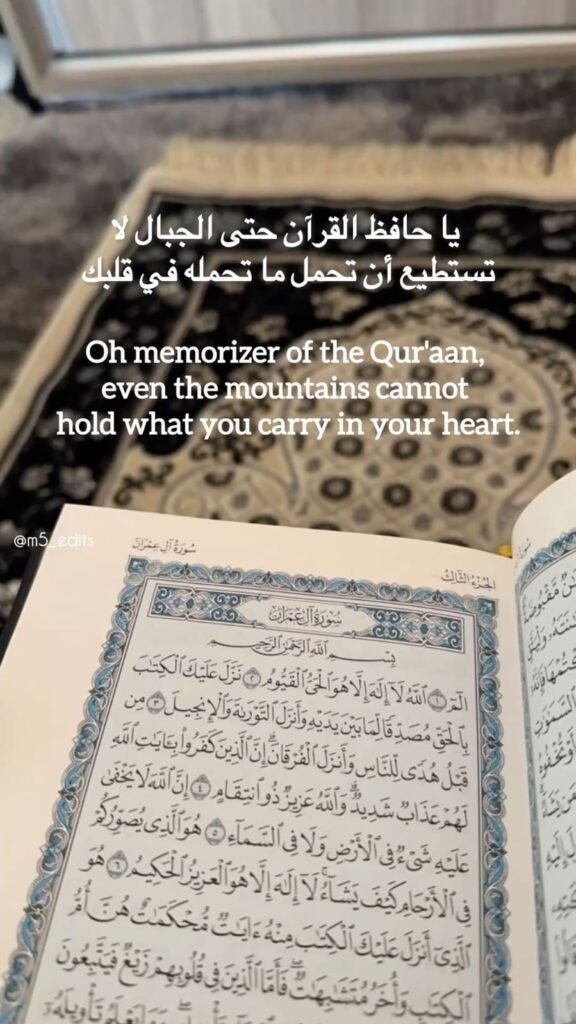 يا حافظ القرآن حتى الجبال لا
تستطيع أن تحمل ما تحمله في قلبك
Oh memorizer of the Qur'aan,
even the mountains cannot
hold what you carry in your heart.
@m5_edits
سُورَةُ آلِ عِمْرَان
الجُزءُ الثَّالِثُ
سُورَةُ آلِ عِمْرَان
بِسْمِ اللَّهِ الرَّحْمَٰنِ الرَّحِيمِ
الٓمٓ ١ ٱللَّهُ لَآ إِلَٰهَ إِلَّا هُوَ ٱلْحَىُّ ٱلْقَيُّومُ ٢ نَزَّلَ عَلَيْكَ ٱلْكِتَٰبَ
بِٱلْحَقِّ مُصَدِّقًا لِّمَا بَيْنَ يَدَيْهِ وَأَنزَلَ ٱلتَّوْرَىٰةَ وَٱلْإِنجِيلَ ٣ مِن
قَبْلُ هُدًى لِّلنَّاسِ وَأَنزَلَ ٱلْفُرْقَانَ ۗ إِنَّ ٱلَّذِينَ كَفَرُوا۟ بِـَٔايَٰتِ ٱللَّهِ
لَهُمْ عَذَابٌ شَدِيدٌ ۗ وَٱللَّهُ عَزِيزٌ ذُو ٱنتِقَامٍ ٤ إِنَّ ٱللَّهَ لَا يَخْفَىٰ
عَلَيْهِ شَىْءٌ فِى ٱلْأَرْضِ وَلَا فِى ٱلسَّمَآءِ ٥ هُوَ ٱلَّذِى يُصَوِّرُكُمْ
فِى ٱلْأَرْحَامِ كَيْفَ يَشَآءُ ۚ لَآ إِلَٰهَ إِلَّا هُوَ ٱلْعَزِيزُ ٱلْحَكِيمُ ٦ هُوَ
ٱلَّذِىٓ أَنزَلَ عَلَيْكَ ٱلْكِتَٰبَ مِنْهُ ءَايَٰتٌ مُّحْكَمَٰتٌ هُنَّ أُمُّ
ٱلْكِتَٰبِ وَأُخَرُ مُتَشَٰبِهَٰتٌ ۖ فَأَمَّا ٱلَّذِينَ فِى قُلُوبِهِمْ زَيْغٌ فَيَتَّبِعُونَ